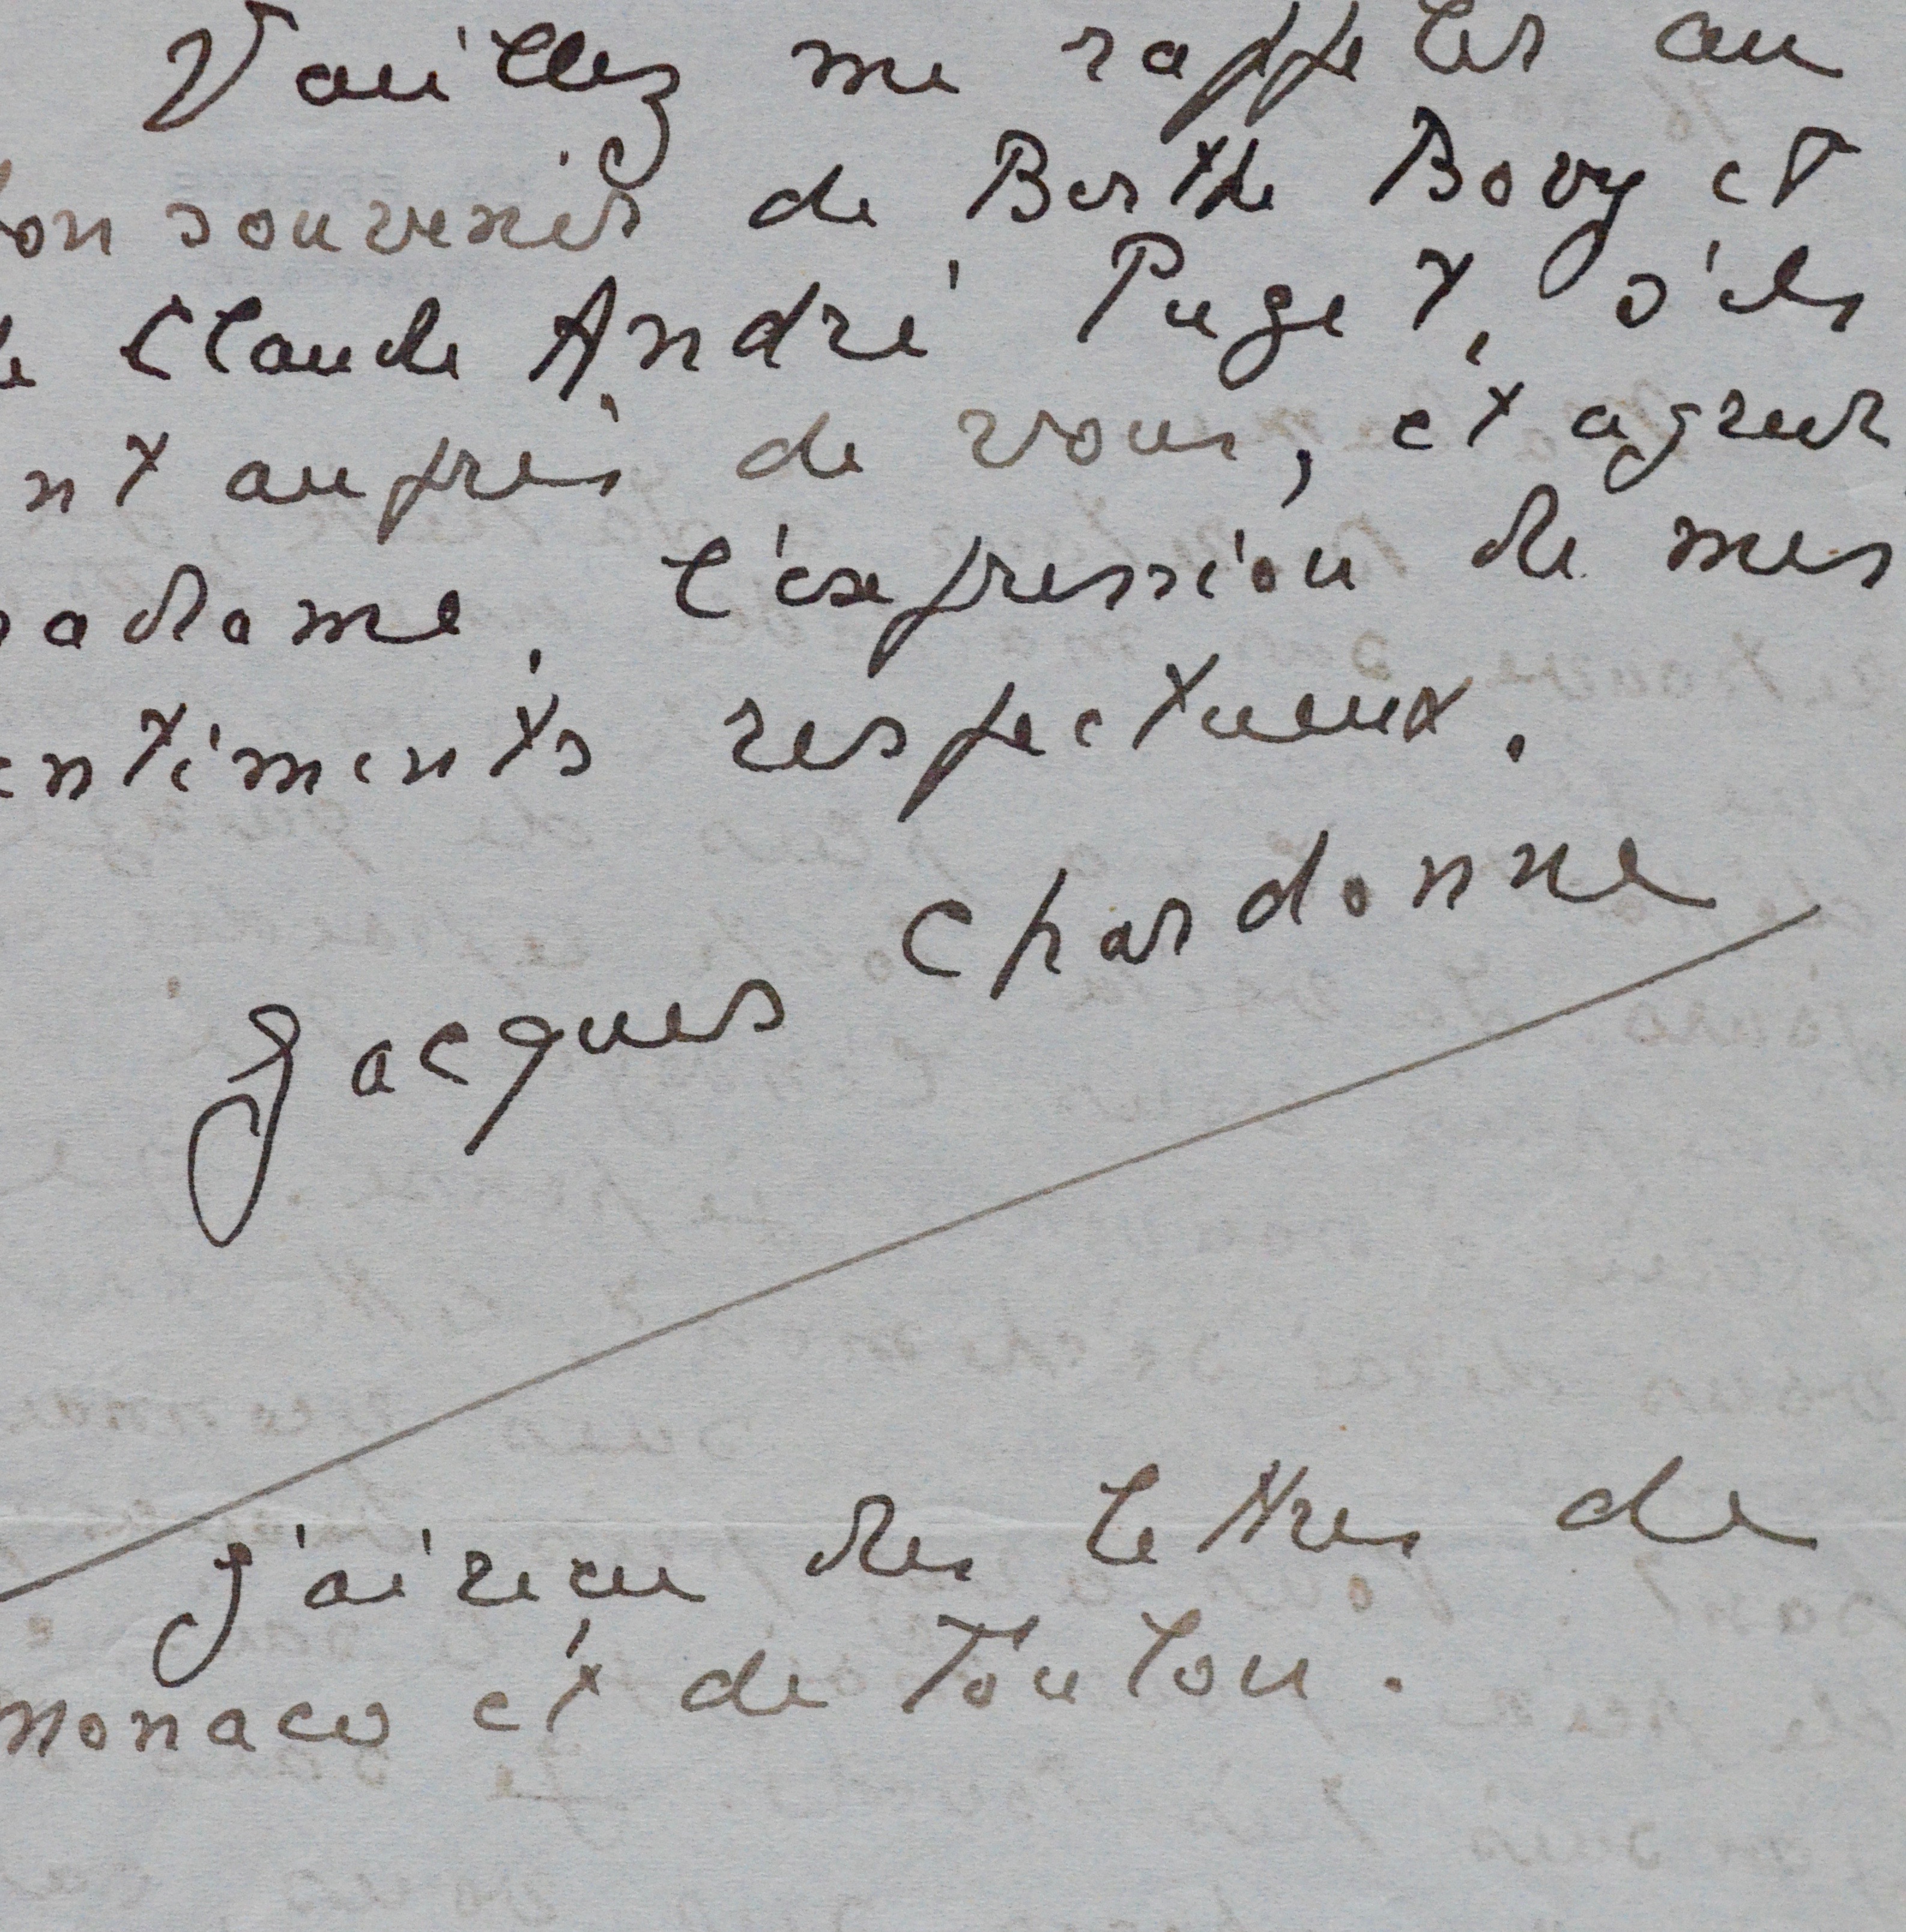 Veuillez me rappeler au
bon souvenir de Berthe Bovy et
de Claude André Puget, s'ils
nt auprès de vous, et agréer,
adame, l'expression de mes
entiments respectueux.
Jacques Chardonne
J'ai reçu des lettres de
Monaco et de Toulon.